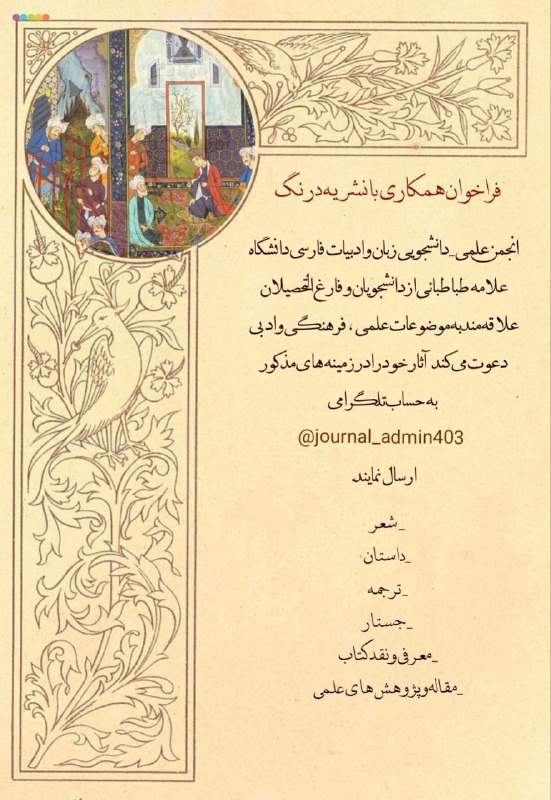 فراخوان همکاری با نشریه درنگ
انجمن علمی_دانشجویی زبان و ادبیات فارسی دانشگاه
علامه طباطبائی از دانشجویان و فارغ التحصیلان
علاقه‌مند به موضوعات علمی، فرهنگی و ادبی
دعوت می‌کند آثار خود را در زمینه‌های مذکور
به حساب تلگرامی
@journal_admin403
ارسال نمایند
_شعر
_داستان
_ترجمه
_جستار
_معرفی و نقد کتاب
_مقاله و پژوهش‌های علمی